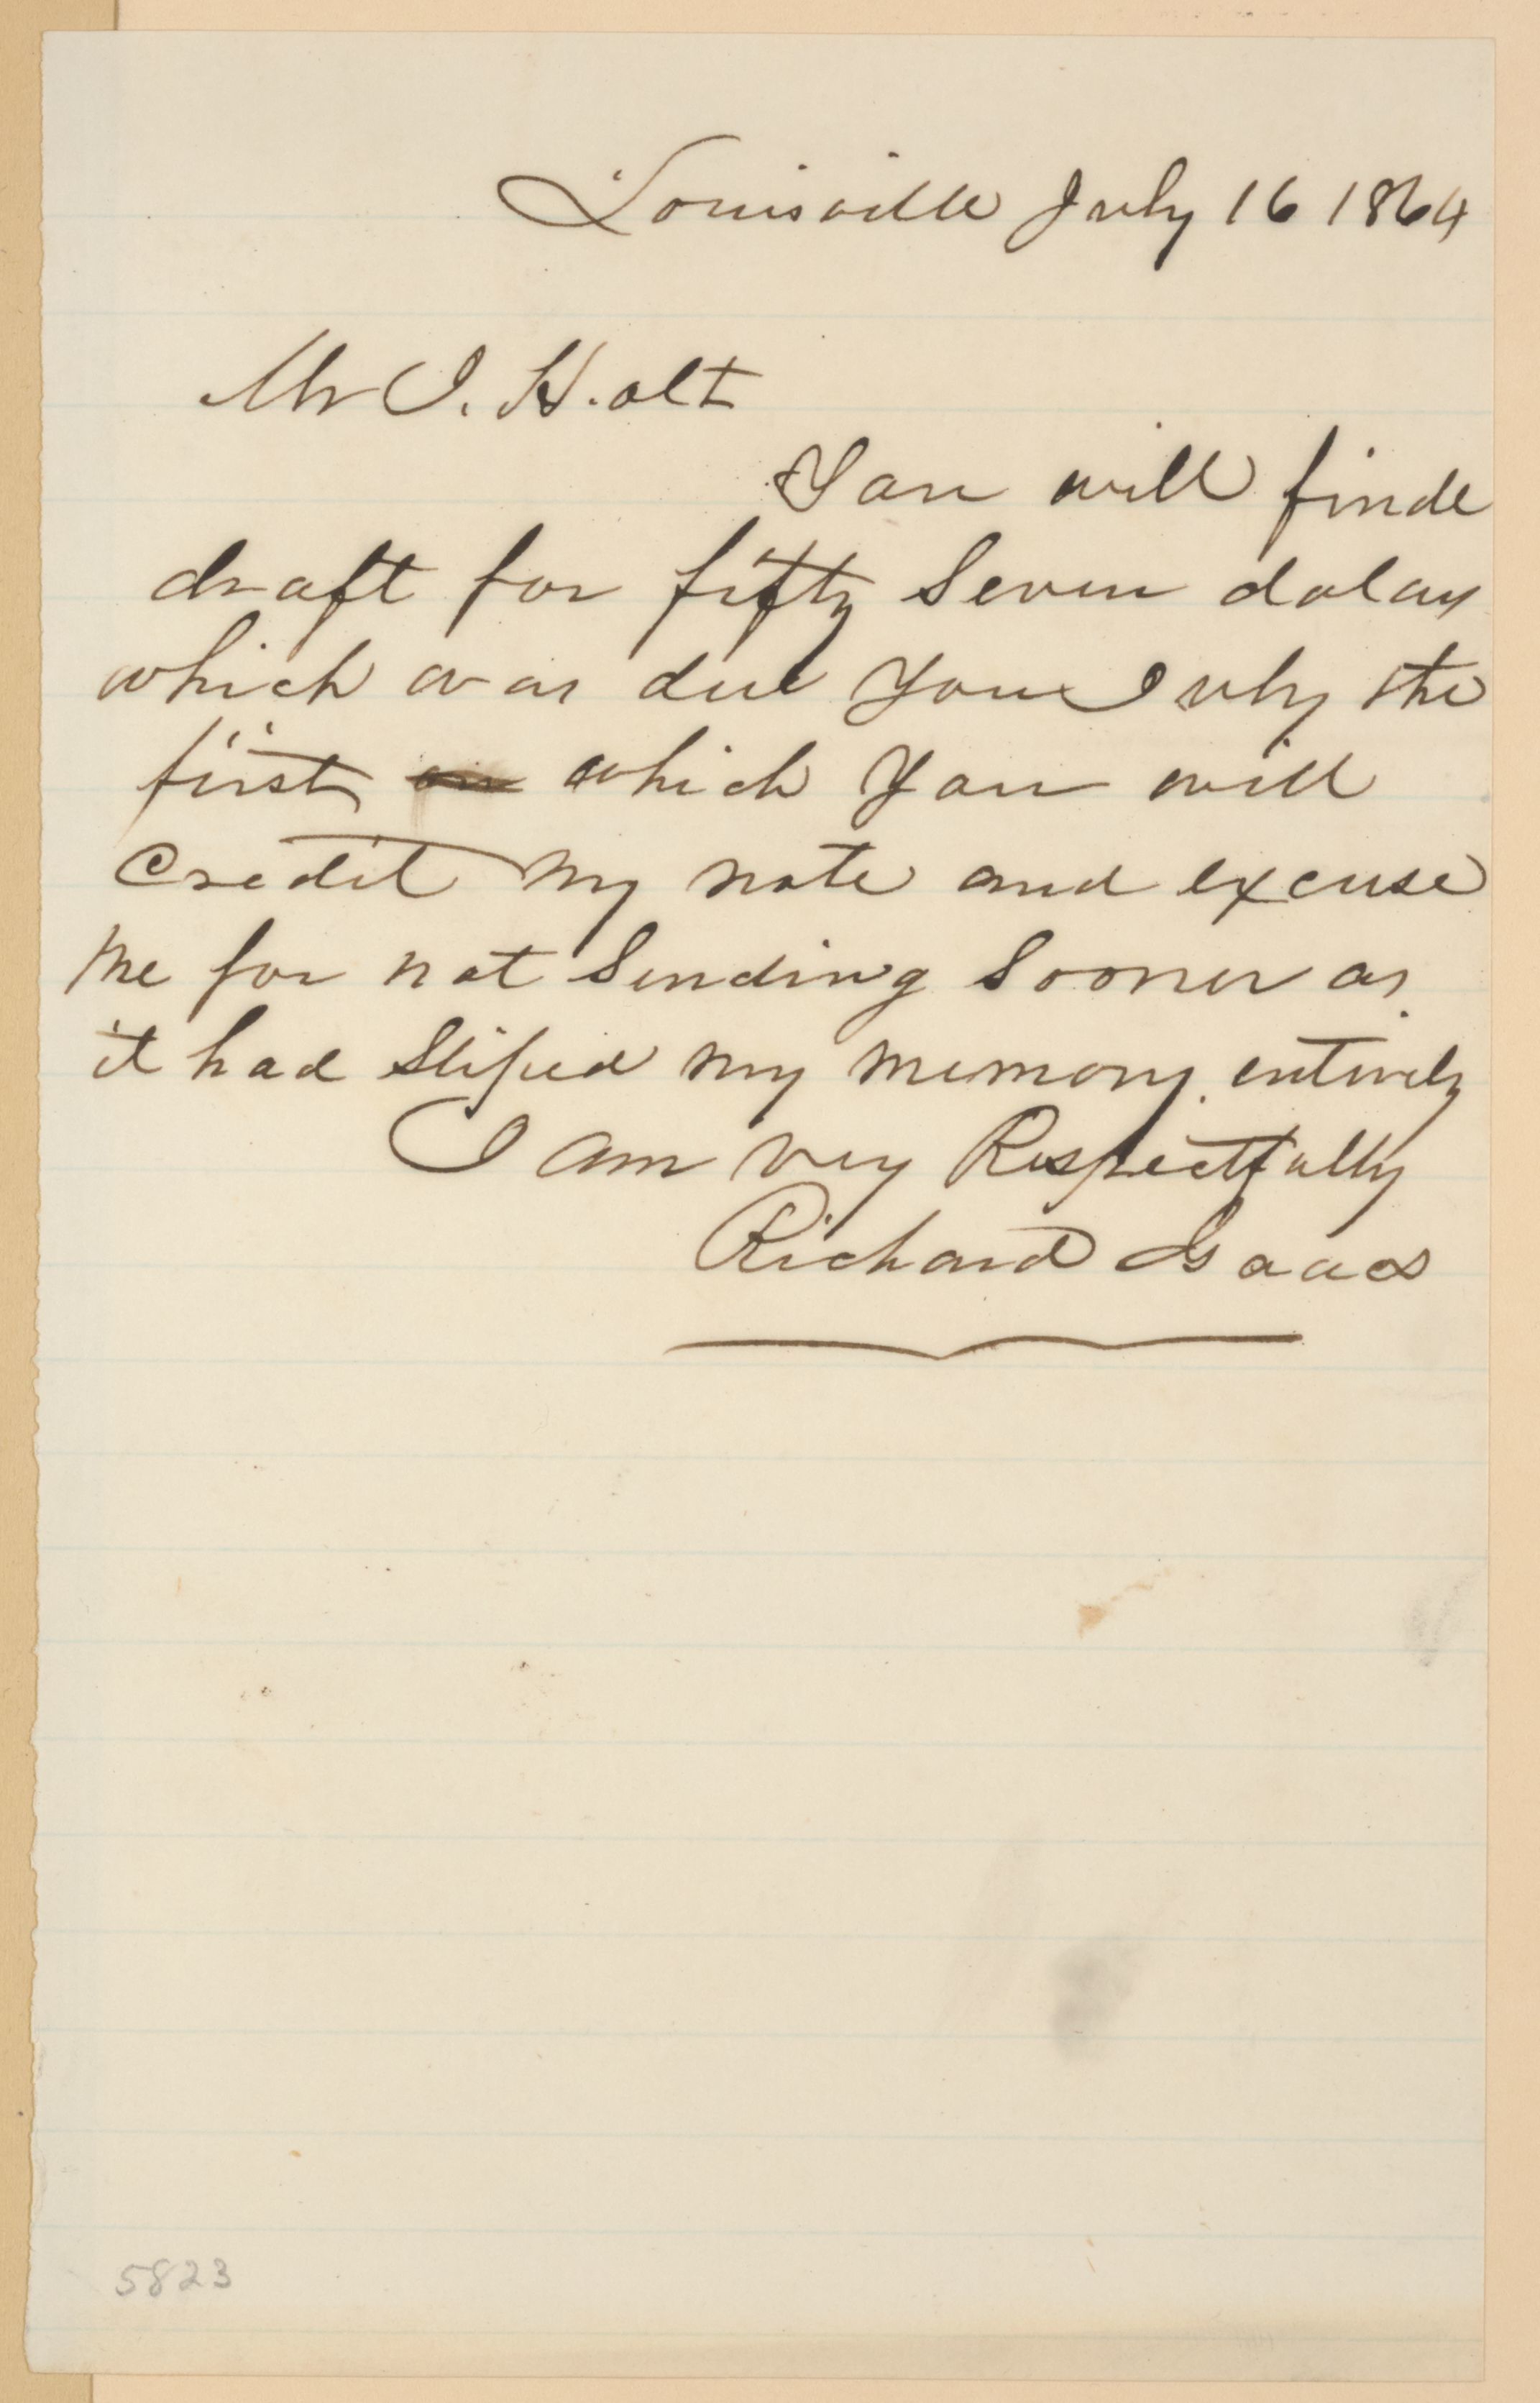 Louisville July 16 1864
Mr J. Holt
You will finde
draft for fifty Seven dolars
which was due you July the
first on which you will
Credit my note and excuse
me for not Sending Sooner as
it had Sliped my memory entirely
I am very Respectfully
Richard Isaacs
5823